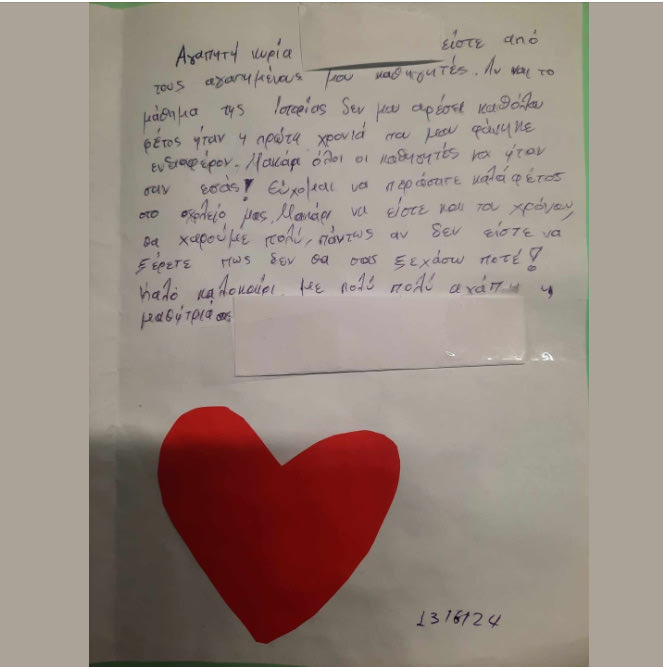 Αγαπητή κυρία είστε από
τους αγαπημένους μου καθηγητές. Αν και το
μάθημα της Ιστορίας δεν μου αρέσει καθόλου
φέτος ήταν η πρώτη χρονιά που μου φάνηκε
ενδιαφέρον. Μακάρι όλοι οι καθηγητές να ήταν
σαν εσάς! Εύχομαι να περάσατε καλά φέτος
στο σχολείο μας, Μακάρι να είστε και του χρόνου,
θα χαρούμε πολύ, πάντως αν δεν είστε να
ξέρετε πως δεν θα σας ξεχάσω ποτέ!
Καλό καλοκαίρι, με πολύ πολύ αγάπη η
μαθήτριά σας
13/6/24